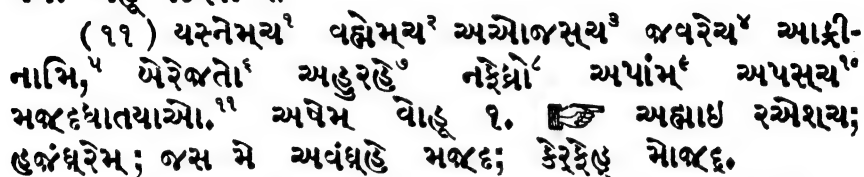 (૧૧) યસ્નેમ્ચ૧ વહ્મેમ્ચ૨ અઓજસ્ચ૩ જવરેચ૪ આફ્રી-
નામિ,૫ બેરેજતો૬ અહુરહે૭ નફેધ્રો૮ અપાંમ્૯ અપસ્ચ૧૦
મજદધાતયાઓ.૧૧ અષેમ્ વોહૂ ૧. ☞ અહ્માઇ રએશ્ચ;
હજંઘ્રેમ્; જસ મે અવંઘ્હે મજદ; કેર્ફેહ મોજદ.